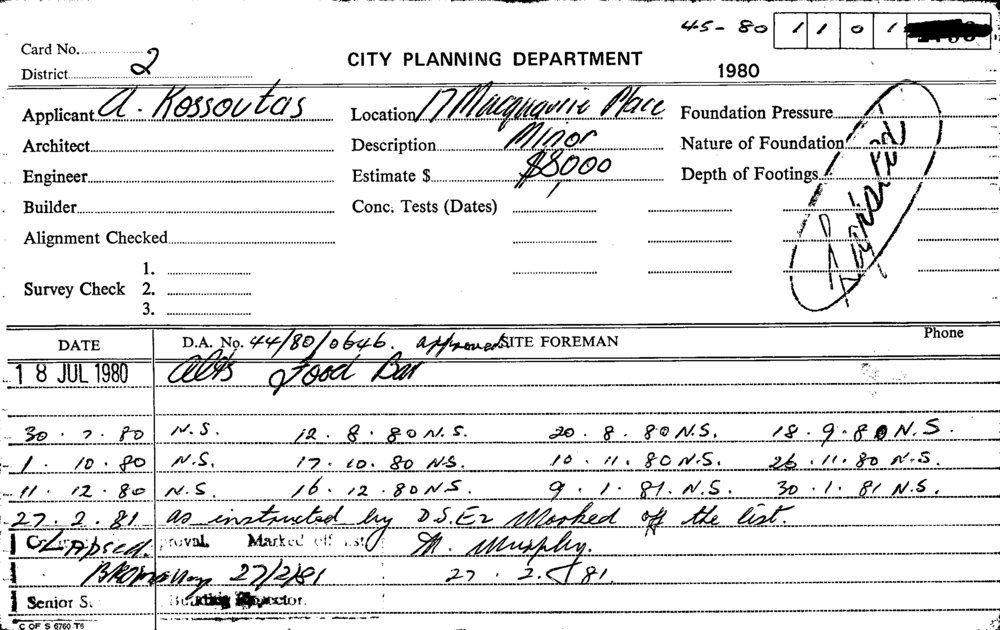 45-80 1 1 0 1
Card No. CITY PLANNING DEPARTMENT
District 2 1980
Applicant A. Kossoutas Location 17 Macquarie Place Foundation Pressure
Architect Description Minor Nature of Foundation
Engineer Estimate $ $3,000 Depth of Footings
Builder Conc. Tests (Dates)
Registered
Alignment Checked
1.
Survey Check 2.
3.
DATE D.A. No. 44/80/0646. approved SITE FOREMAN Phone
18 JUL 1980 Alts Food Bar
30.7.80 N.S. 12.8.80 N.S. 20.8.80 N.S. 18.9.80 N.S.
1.10.80 N.S. 17.10.80 N.S. 10.11.80 N.S. 26.11.80 N.S.
11.12.80 N.S. 16.12.80 N.S. 9.1.81. N.S. 30.1.81 N.S.
27.2.81 as instructed by D.S.E2 Marked off the list.
Lapsed. Marked off list M. Murphy.
27/2/81 27.2.81.
Senior Building Inspector.
C OF S 6760 T6